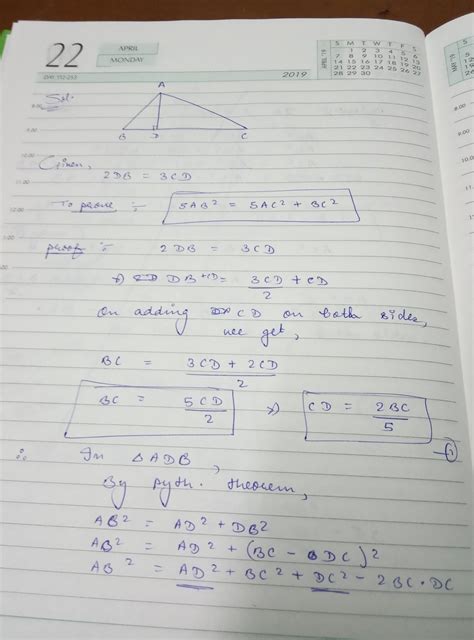 22
APRIL
MONDAY
DAY 112-253
2019
APRIL '19
S M T W T F S
1 2 3 4 5 6
7 8 9 10 11 12 13
14 15 16 17 18 19 20
21 22 23 24 25 26 27
28 29 30
MAY '19
Sol:
A
B D C
8.00
9.00
10.00
11.00
12.00
1.00
Given,
2DB = 3CD
To prove :-
5AB² = 5AC² + BC²
proof :-
2DB = 3CD
DB + CD = 3CD/2 + CD
On adding CD on both sides,
we get,
BC = 3CD + 2CD/2
BC = 5CD/2 ⇒ CD = 2BC/5 —①
∴ In △ADB,
By pyth. theorem,
AB² = AD² + DB²
AB² = AD² + (BC - DC)²
AB² = AD² + BC² + DC² - 2BC·DC